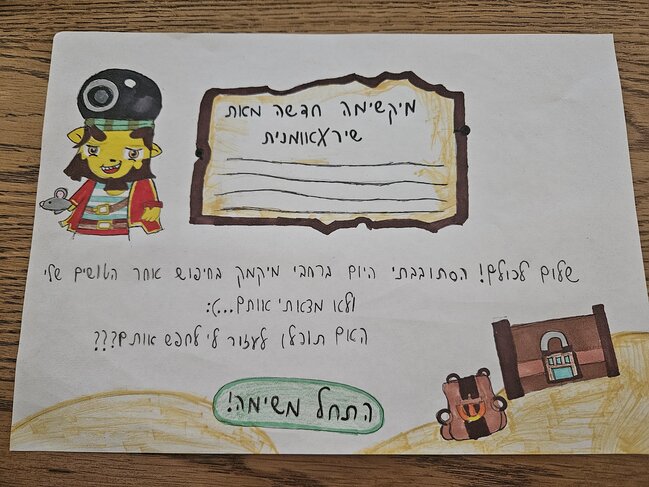 מיקשימה חדשה מאת
שירצאוומנית
שלום לכולם! הסתובבתי היום ברחבי מיקמק בחיפוש אחר הטושים שלי
ולא מצאתי אותם...):
האם תוכלו לעזור לי לחפש אותם???
התחל משימה!